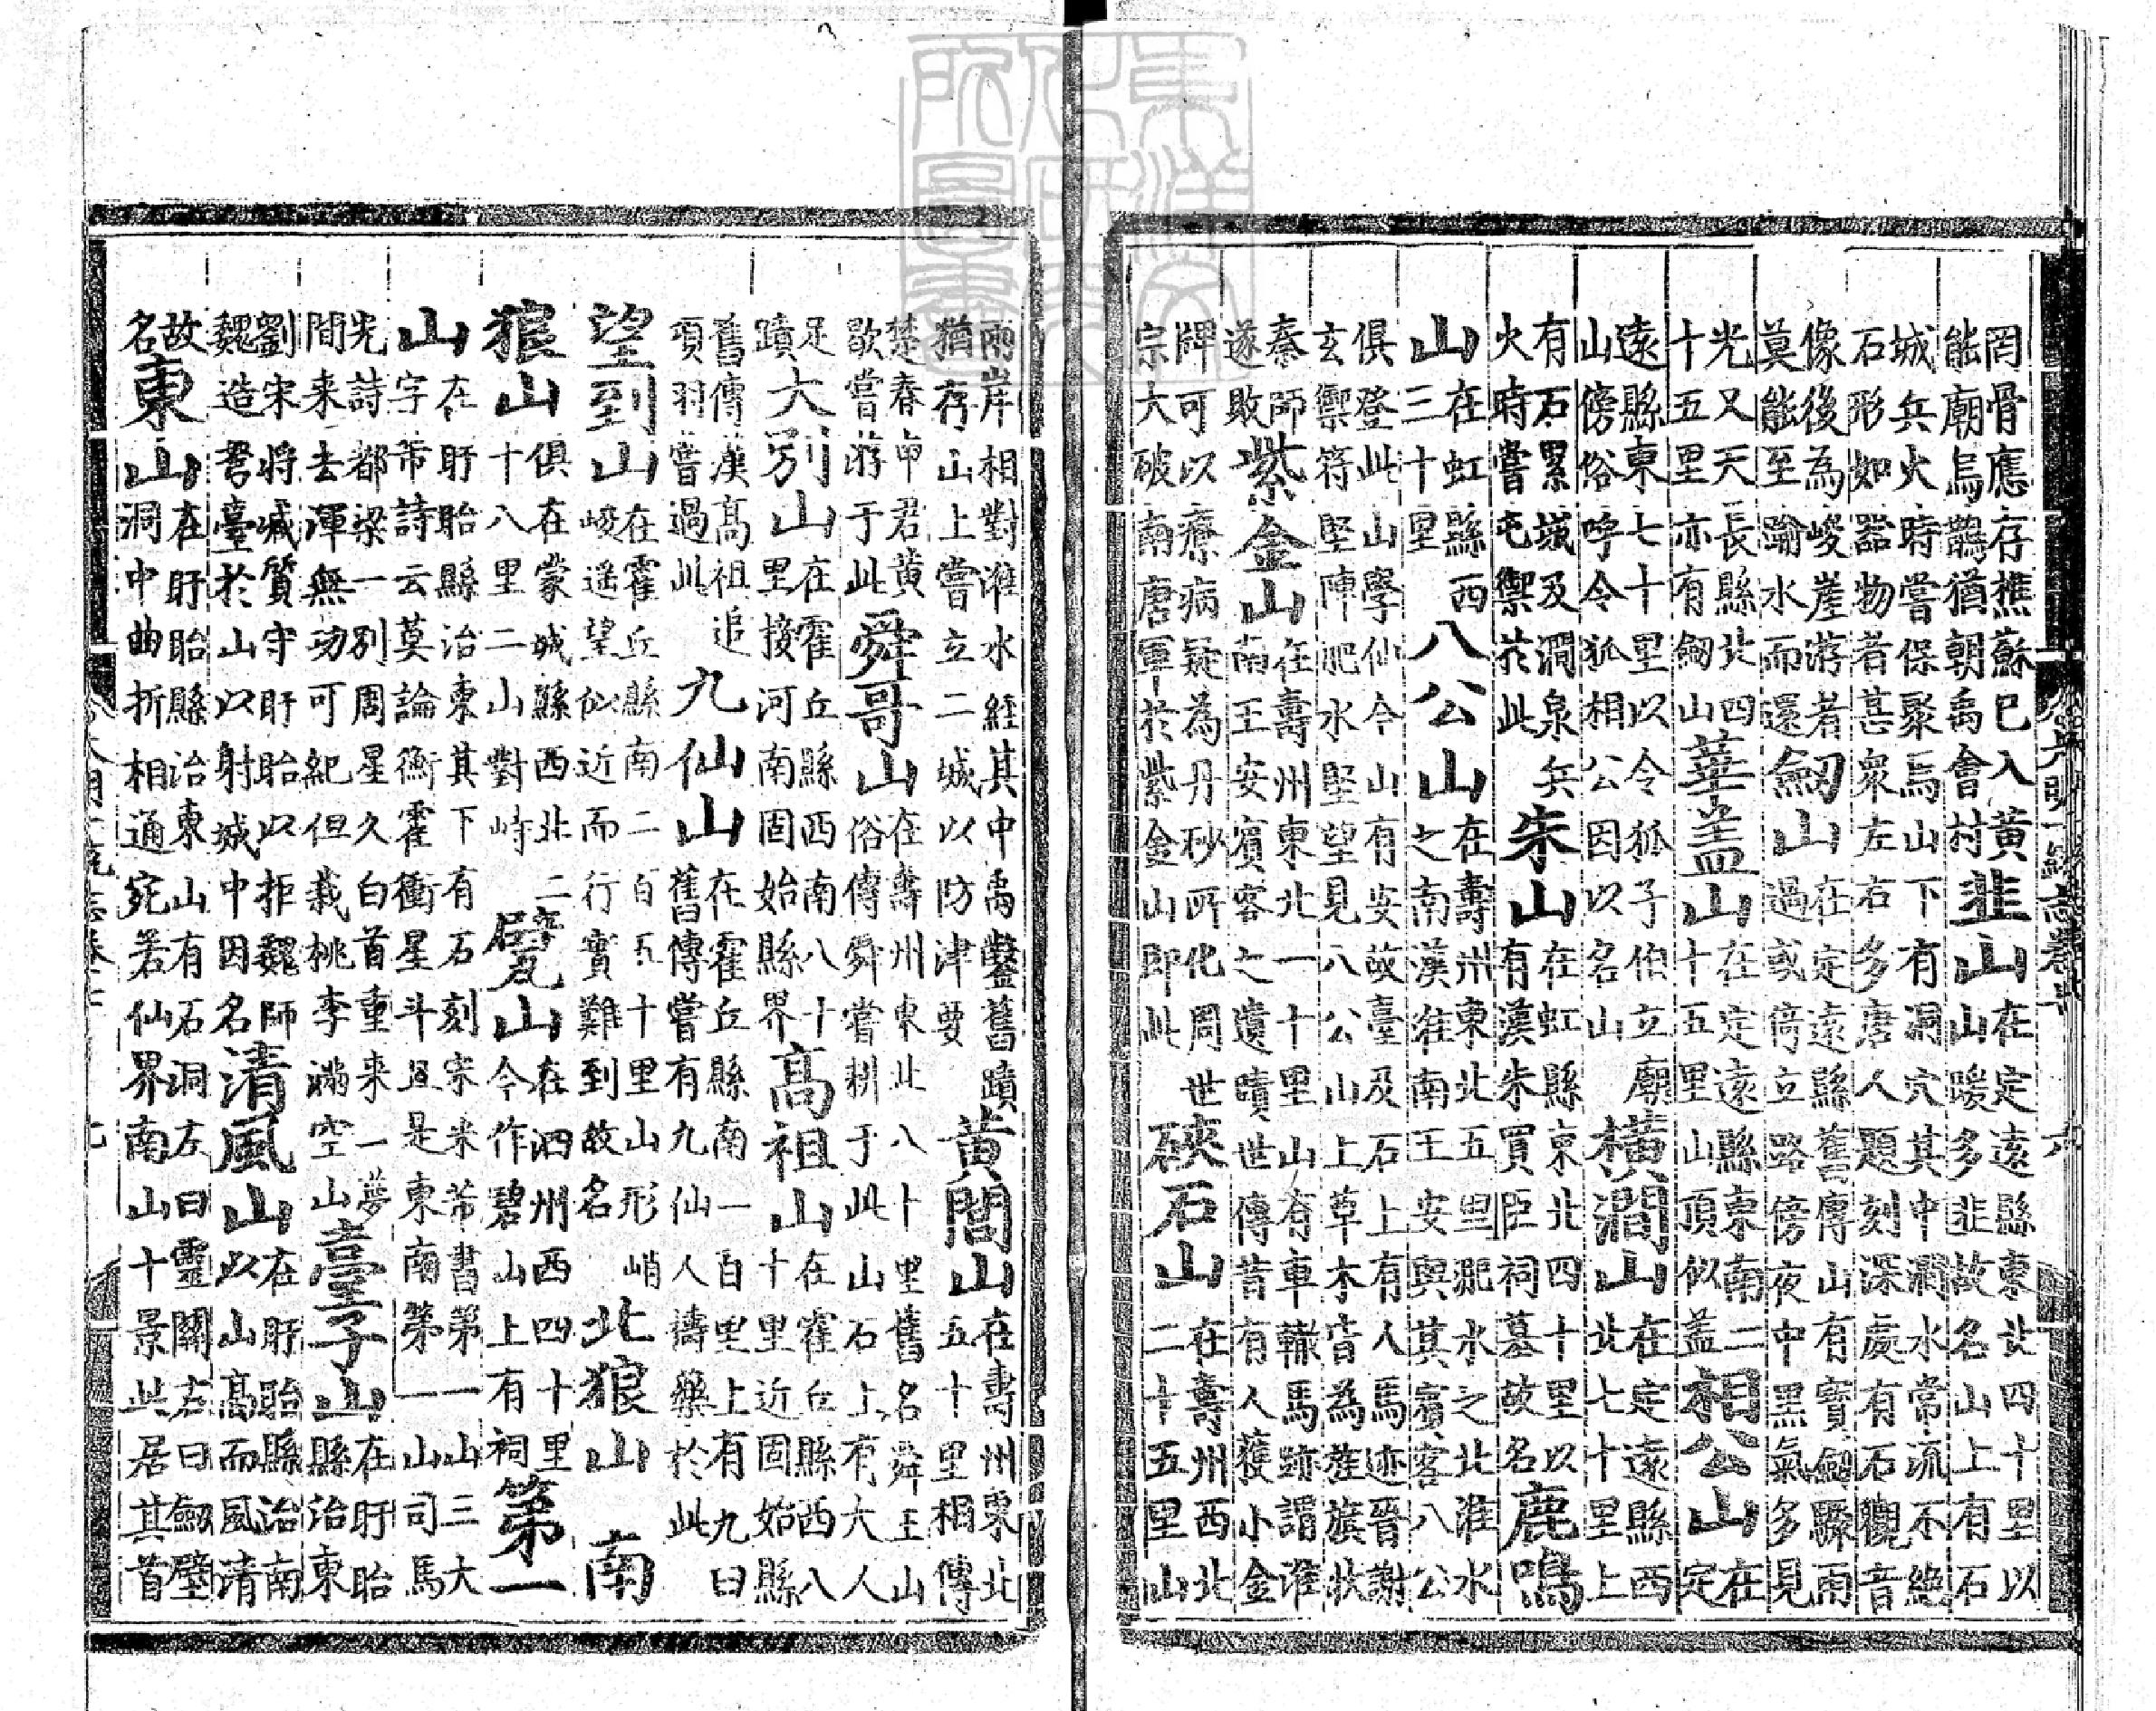 罔骨應存樵蘇巳入黃
能廟烏鵲猶朝禹會村
韭山
在定遠縣東北四十里以
山暖多韭故名山上有石
城兵火時嘗保聚焉山下有洞穴其中澗水常流不絶
石形如器物者甚衆左右多唐人題刻深處有石觀音
像後為峻崖游者
莫能至瀹水而還
劒山
在定遠縣舊傳山有寶劒驟雨
過或倚立路傍夜中黑氣多見
光又天長縣北四
十五里亦有劒山
華盖山
在定遠縣東南二
十五里山頂似盖
相公山
在
定
遠縣東七十里以令狐子伯立廟
山傍俗呼令狐相公因以名山
橫澗山
在定遠縣西
北七十里上
有石累城及澗泉兵
火時嘗屯禦於此
朱山
在虹縣東北四十里以
有漢朱買臣祠墓故名
鹿鳴
山
在虹縣西
三十里
八公山
在壽州東北五里淝水之北淮水
之南漢淮南王安與其賓客八公
俱登此山學仙今山有安故臺及石上有人馬迹晉謝
玄禦符堅陣肥水堅望見八公山上草木皆為旌旗狀
秦師
遂敗
紫金山
在壽州東北一十里山有車轍馬跡謂淮
南王安賓客之遺蹟世傳昔有人獲小金
牌可以療病疑為丹砂所化周世
宗大破南唐軍於紫金山即此
硤石山
在壽州西北
二十五里山
兩岸相對淮水經其中禹鑿舊蹟
猶存山上嘗立二城以防津要
黃閭山
在壽州東北
五十里相傳
楚春申君黃
歇嘗游于此
舜哥山
在壽州東北八十里舊名舜王山
俗傳舜嘗耕于此山石上有大人
足
蹟
大別山
在霍丘縣西南八十
里接河南固始縣界
高祖山
在霍丘縣西八
十里近固始縣
舊傳漢高祖追
項羽嘗過此
九仙山
在霍丘縣南一百里上有九臼
舊傳嘗有九仙人擣藥於此
望到山
在霍丘縣南二百五十里山形峭
峻遙望似近而行實難到故名
北狼山
南
狼山
俱在蒙城縣西北二
十八里二山對峙
甓山
在泗州西四十里
今作碧山上有祠
第一
山
在盱眙縣治東其下有石刻宋米芾書第一山三大
字芾詩云莫論衡霍衝星斗且是東南第一山司馬
光詩都梁一別周星久白首重来一夢
間来去渾無功可紀但栽桃李滿空山
臺子山
在盱眙
縣治東
劉宋將臧質守盱眙以拒魏師
魏造弩臺於山以射城中因名
清風山
在盱眙縣治南
以山高而風清
故
名
東山
在盱眙縣治東山有石洞左曰靈關右曰劒壁
洞中曲折相通宛若仙界南山十景此居其首